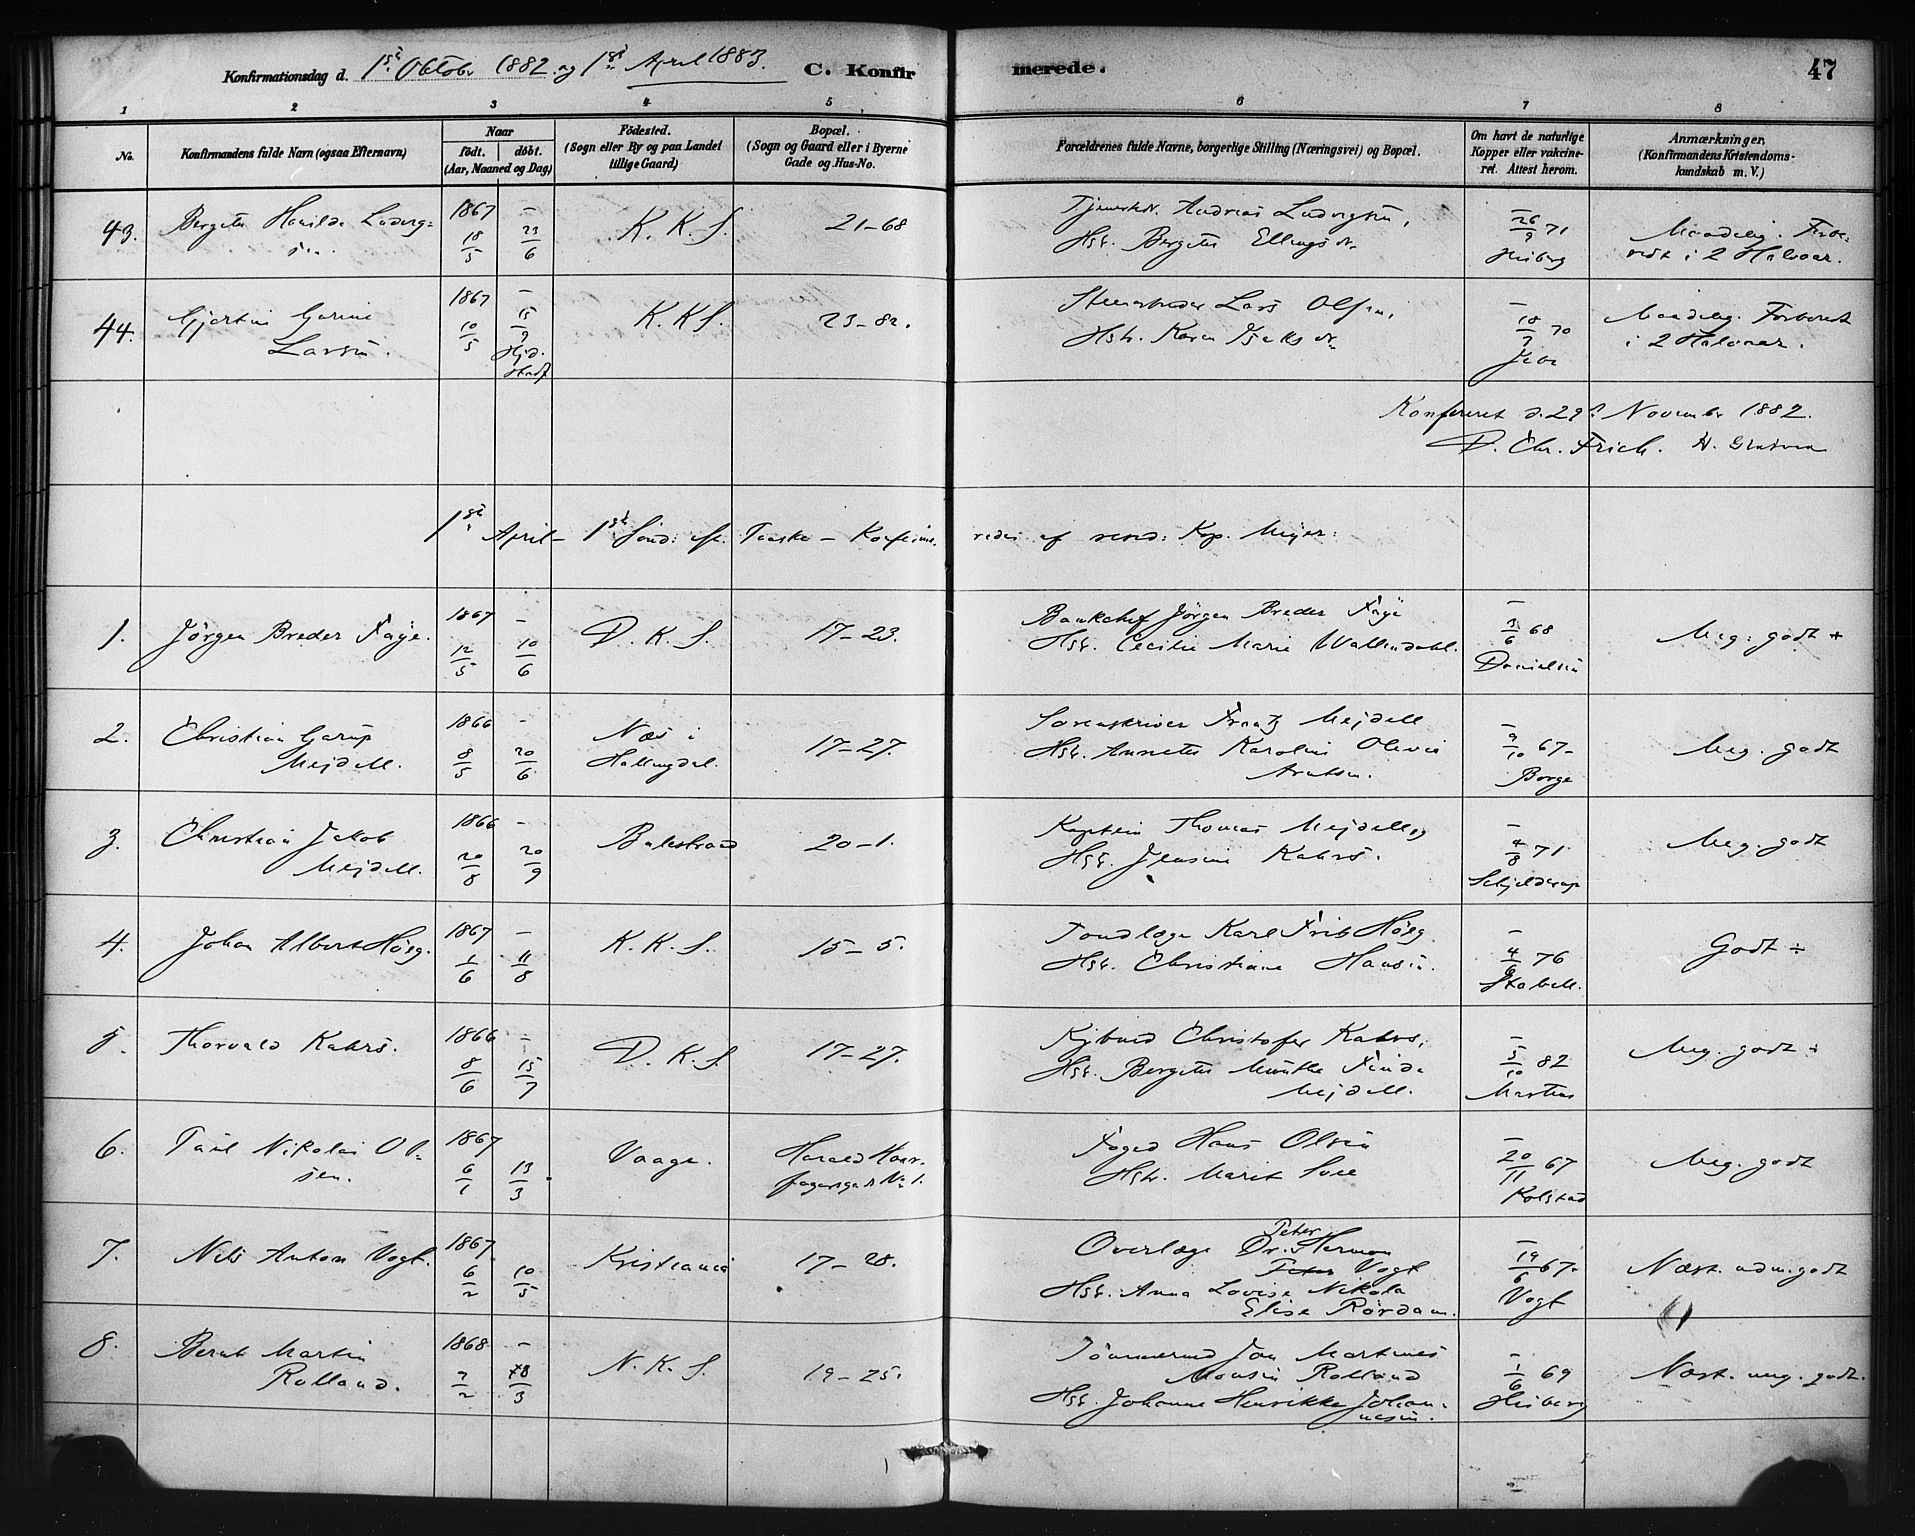 Konfirmationsdag d. 1ste Oktobr 1882 og 1ste April 1883. C. Konfirmerede. 47
1 2 3 4 5 6 7 8
No. Konfirmandens fulde Navn (ogsaa Efternavn) Naar födt. döbt. (Aar, Maaned og Dag)
Födested. (Sogn eller By og paa Landet tillige Gaard)
Bopæl. (Sogn og Gaard eller i Byerne Gade og Hus-No.
Forældrenes fulde Navne, borgerlige Stilling (Næringsvei) og Bopæl.
Om havt de naturlige Kopper eller vakcineret. Attest herom.
Anmærkninger. (Konfirmandens Kristendomskundskab m. V.)
43. 1867 – K. K. S. 21–68 Andreas Ludvigsen,
18/5 23/6 Hst. Bergitte Ellingsdr 26/9 71 Heiberg
i 2 Halvaar.
44. Larsen. 1867 – K.K.S. 23–82. Lars Olsen,
10/5 15/9 Hst. Karen 18/ 70
i 2 Halvaar.
Konfereret d. 29. Novembr 1882.
D. Chr. Frich.
1ste April – 1ste Sönd: eft. Paaske – Konfirmeredes af resid: Kap. Meyer:
1. Jörgen Breder Faye. 1867 – D. K. S. 17–23. Bankchef Jörgen Breder Faye
12/5 10/6 Hst. Cecilie Marie Wallendahl. 3/6 68 Danielsen Meg. godt +
2. Christian Garup Mejdell. 1866 – Næs i Hallingdal. 17–27. Sorenskriver Frantz Mejdell
8/5 20/6 Hst. Annette Karoline Olivie Arntzen. 9/10 67– Borge Meg. godt
3. Christian Jakob Mejdell. 1866 – Balestrand 20–1. Kaptein Thomas Mejdell og
20/8 20/9 Hst. Jensine Kahrs. 4/8 71 Schjelderup Meg. godt
4. Johan Albert Höeg. 1867 – K. K. S. 15–5. Tandlæge Karl Frits Höeg
1/6 11/8 Hst. Christiane Hansen. 4/6 76 Stabell. Godt ÷
5. Thorvald Kahrs. 1866 – D. K. S. 17–27. Kjöbmd Christofer Kahrs,
8/6 15/7 Hst. Bergitte Münthe Finde Mejdell. 5/10 82 Martens Meg. godt ÷
6. Paul Nikolai Olsen. 1867 Vaage. Harald Haarfagersgade No 1. Foged Hans Olsen
6/1 13/3 Hst. Marit 20/11 67 Kolstad Meg. godt
7. Nils Anton Vogt. 1867 Kristiania 17–28. Overlæge Dr. Peter Herman Peter Vogt
6/2 10/5 Hst. Anna Lovise Nikola Elise Rördam. 19/6 67– Vogt Næst. udm. godt
8. Bernt Martin Rolland. 1868 – N. K. S. 19–25. Tömmermd Jan Martinus Monsen Rolland
2/2 /3 Hst. Johanne Henrikke Johannesen. 1/6 69 Heiberg Næst. meg. godt.